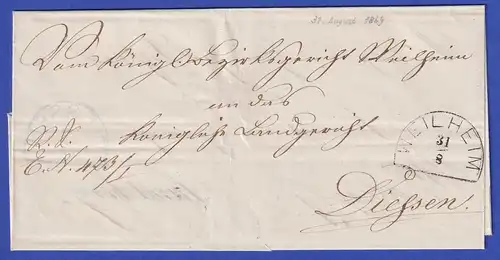 31. August 1869
Vom Königl. Bezirksgericht Weilheim
an das
Königliche Landgericht
R. S.
E. N. 473/1
WEILHEIM
31
8
Diessen.